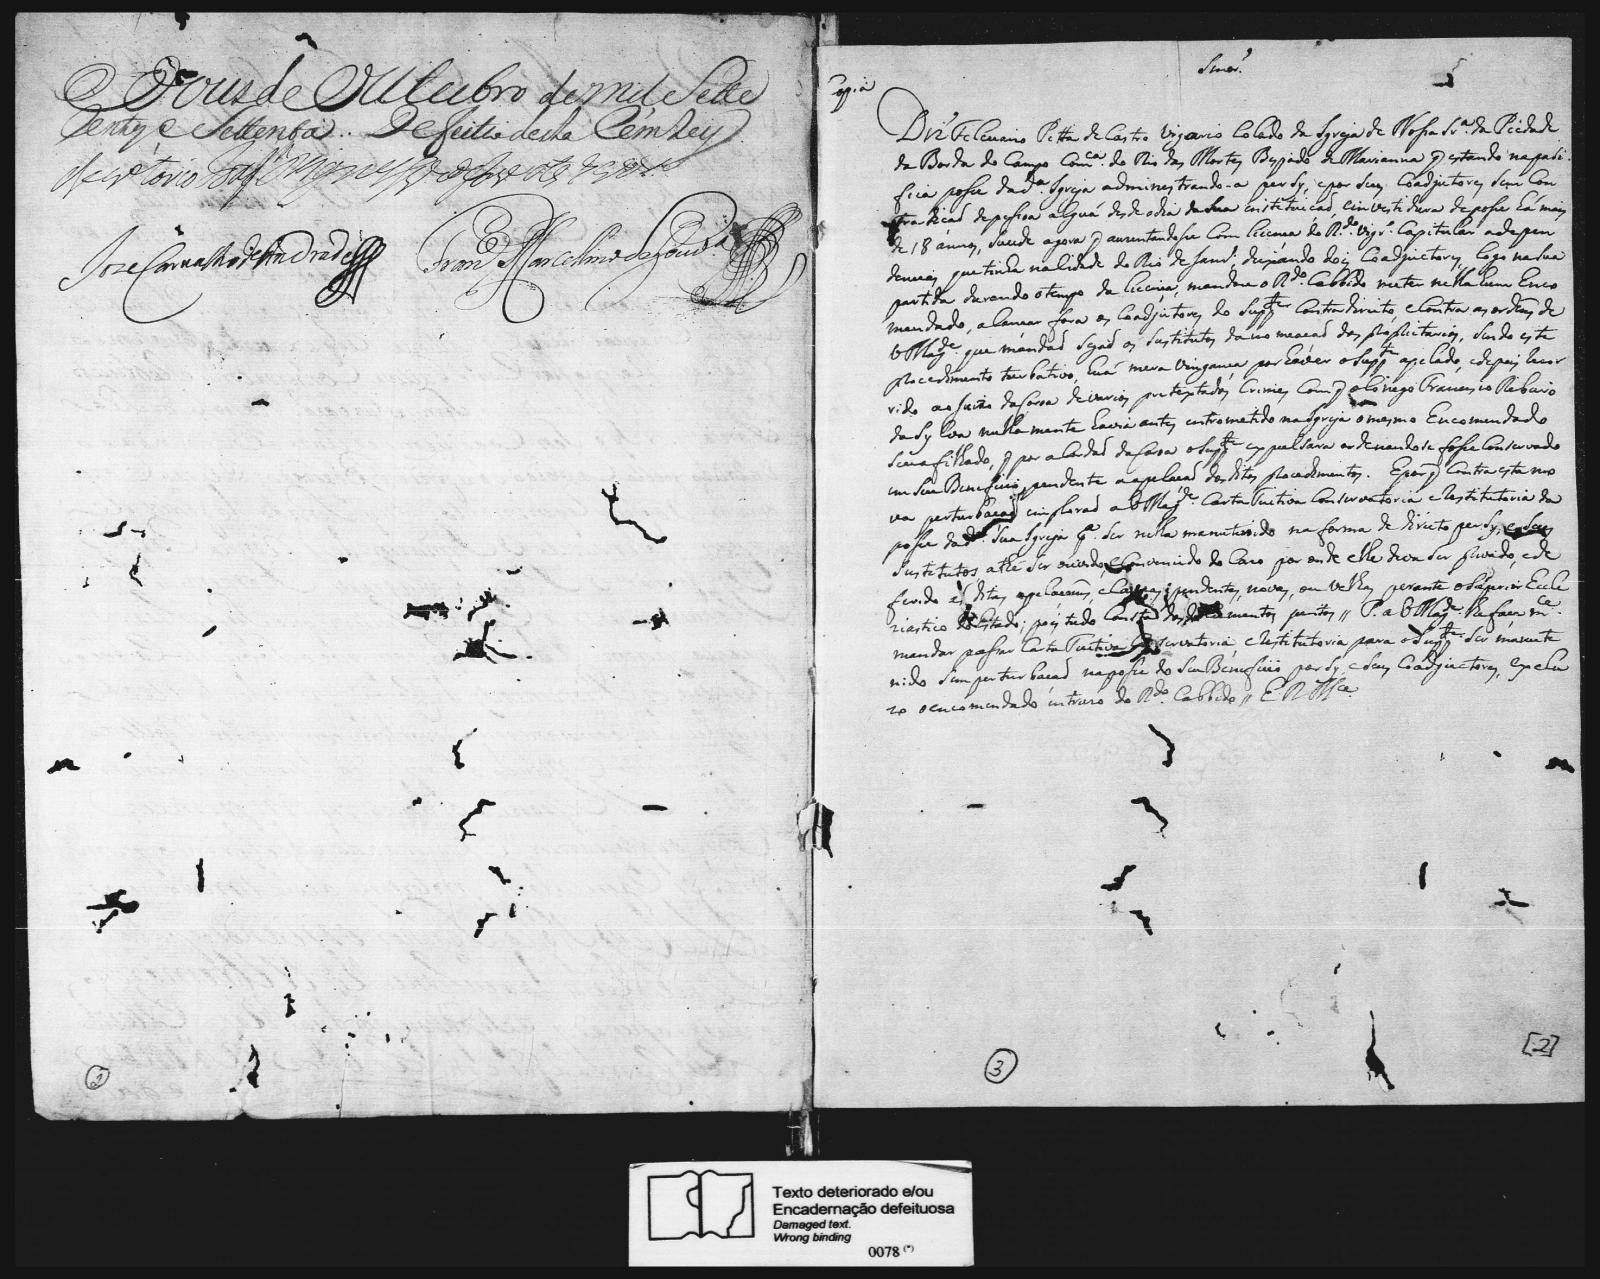 de Outubro de mil Sette
Sentos e Settenta. De feitio desta Cem Rey
Joze Carvalho de Andrade
Fran.co Marcelino de Souza
Copia
Snor.
Diz Feliciano Pitta de Castro Vigario Colado da Igreja de Nossa Sr.ª da Piedade
da Borda do Campo Com.ca do Rio das Mortes Bispado de Marianna q estando na pasi-
fica posse da d.ª Igreja administrando-a per sy, e por seus Coadjutores sem Con
tradicaó de pessoa alguá desde o dia da sua instituicaó, e investidura de posse há mais
de 18 annos, sucede agora q auzentandose Com licença do R.do Vigr.º Capitular a depen
dencias que tinha na Cidade do Rio de Janr.º, deixando dois Coadjuctores, logo na sua
partida durando o tempo da licença, mandou o R.do Cabbido meter nella hum Enco
mendado, a lançar fora os Coadjutores do Supp.te Contra direito, e Contra as ordens de
V Mag.de que mandaó sejaó os sustitutos da nomeacaó dos proprietarios, sendo este
procedimento turbativo, huá mera vingança por haver o Supp.te apelado, e depois recor
rido ao Juizo da Coroa de varios pretextados Crimes Com q o Conego Francisco Ribeiro
da Sylva nullamente havia antes intrometido na Igreja o mesmo Encomendado
seu afilhado, q por acordaó da Coroa o Supp.te expulsara ordenandose fosse Conservado
em seu Beneficio, pendente a apelacaó dos ditos procedimentos. E porq Contra esta no
va perturbacaó imploraó a V Mag.de Carta Tuitiva Conservatoria e Restitutoria da
posse da d.ª sua Igreja p.ª ser nella manutenido na forma de direito per sy, e seus
sustitutos athé ser ouvido, e Convencido do Cazo por onde elle deva ser privado, e de
ferido ás ditas apelacoens, e Cauzas pendentes, novas, ou velhas, perante o Superior Eccle
ziastico do Estado; pois tudo Consta dos documentos juntos // P. a V Mag.de lhe faça m.ce
mandar passar Carta Tuitiva Conservatoria e Restitutoria para o Supp.te ser manute
nido sem perturbacaó na posse do seu Beneficio per sy, e seus Coadjuctores, excluu
zo o encomendado intruzo do R.do Cabbido // E R M.ce
2
3
[2]
Texto deteriorado e/ou
Encadernação defeituosa
Damaged text.
Wrong binding
0078 (*)